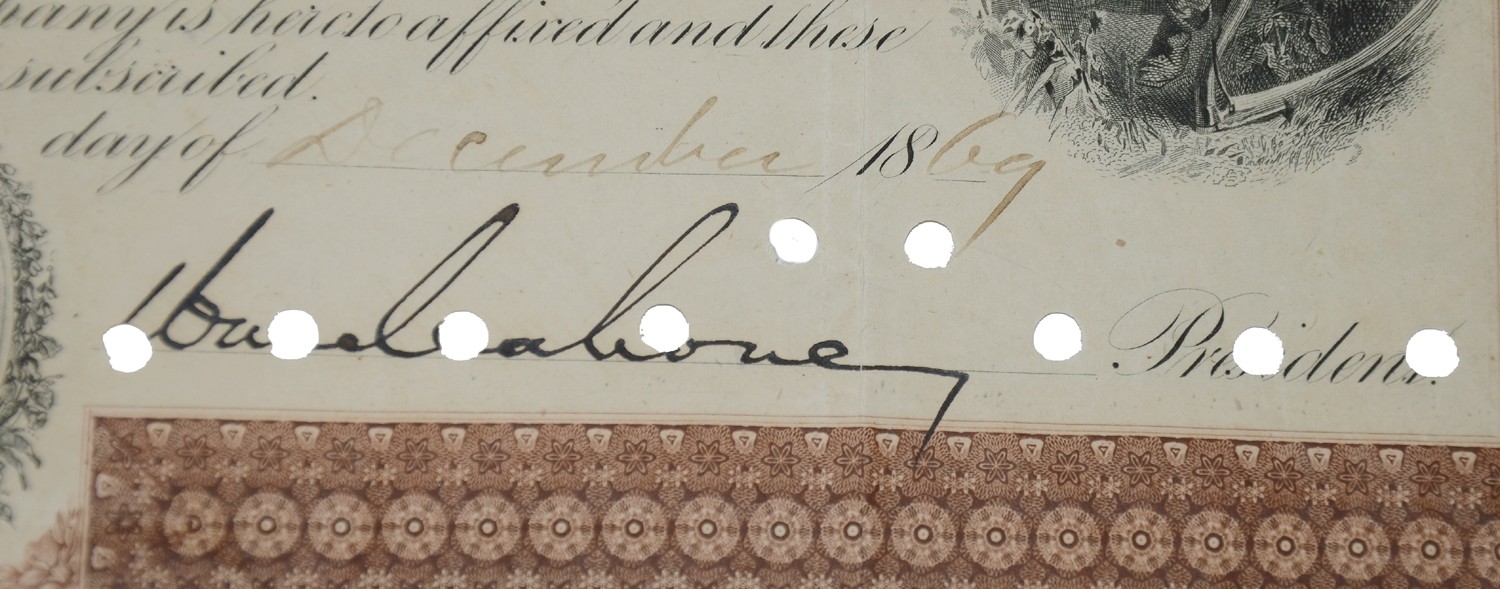 is hereto affixed and these
subscribed.
day of December 1869
Wm Mahone President.